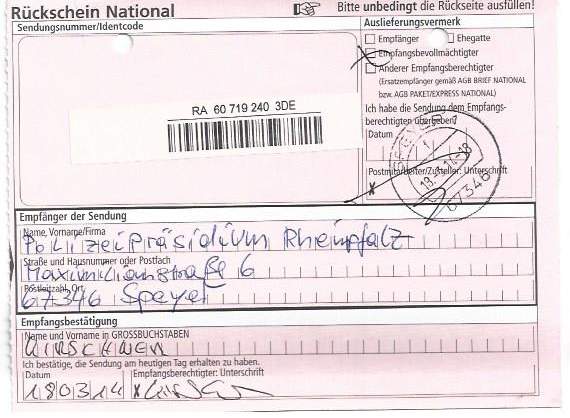 Rückschein National
Bitte unbedingt die Rückseite ausfüllen!
Sendungsnummer/Identcode
RA 60 719 240 3DE
Auslieferungsvermerk
Empfänger Ehegatte
Empfangsbevollmächtigter
Anderer Empfangsberechtigter
(Ersatzempfänger gemäß AGB BRIEF NATIONAL
bzw. AGB PAKET/EXPRESS NATIONAL)
Ich habe die Sendung dem Empfangs-
berechtigten übergeben
Datum
Postmitarbeiter/Zusteller: Unterschrift
SPEYER 1
18.3.14-18
67346
Empfänger der Sendung
Name, Vorname/Firma
Polizeipräsidium Rheinpfalz
Straße und Hausnummer oder Postfach
Maximilianstraße 6
Postleitzahl, Ort
67346 Speyer
Empfangsbestätigung
Name und Vorname in GROSSBUCHSTABEN
Ich bestätige, die Sendung am heutigen Tag erhalten zu haben.
Datum Empfangsberechtigter: Unterschrift
180314 x